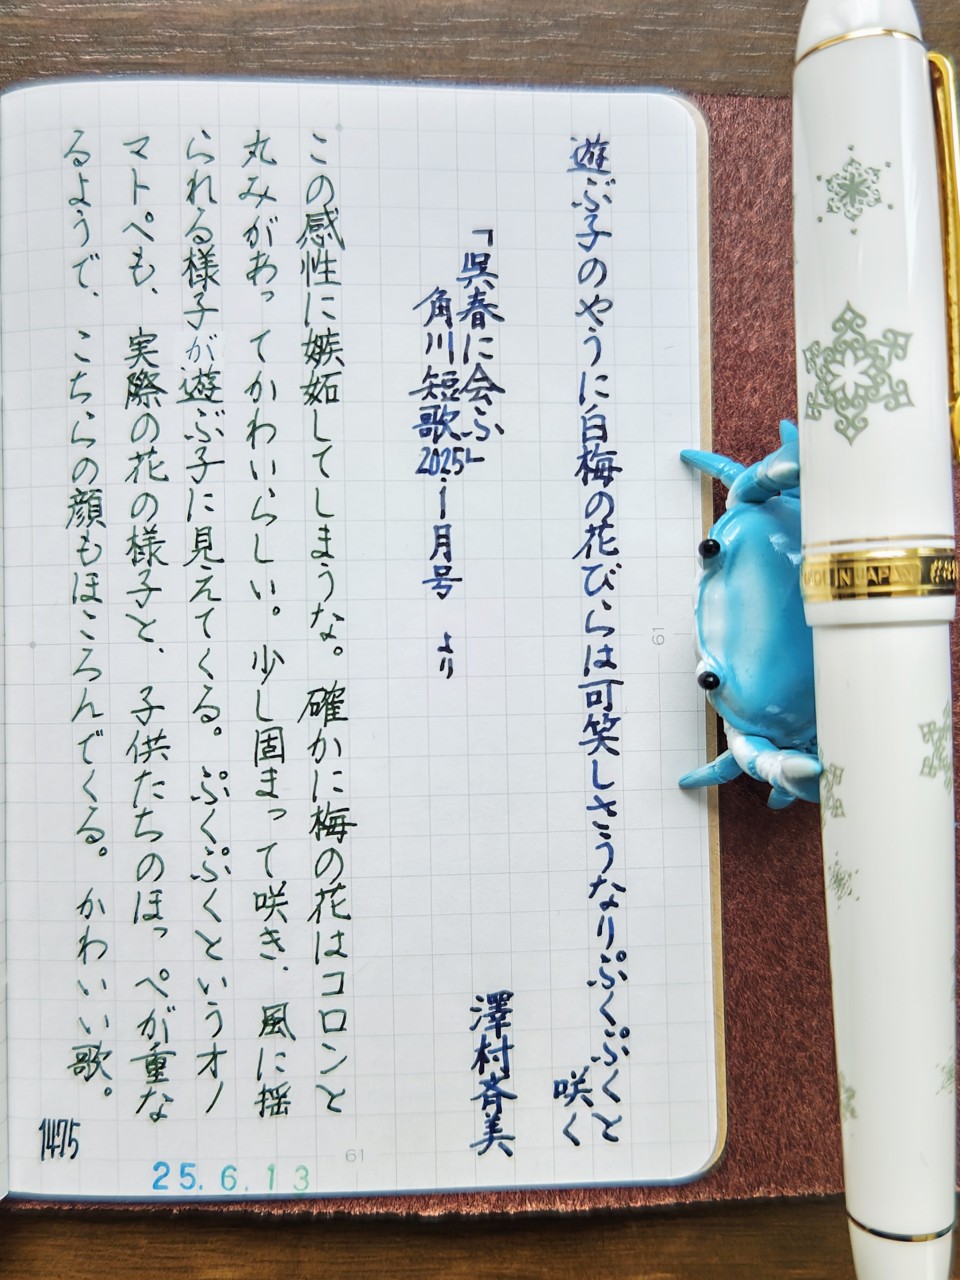 遊ぶ子のやうに白梅の花びらは可笑しさうなりぷくぷくと
咲く
「呉春に会ふ」
角川短歌2025.1月号 より
澤村斉美
この感性に嫉妬してしまうな。確かに梅の花はコロンと
丸みがあってかわいらしい。少し固まって咲き、風に揺
られる様子が遊ぶ子に見えてくる。ぷくぷくというオノ
マトペも、実際の花の様子と、子供たちのほっぺが重な
るようで、こちらの顔もほころんでくる。かわいい歌。
1475
25.6.13
61
61
IN JAPAN